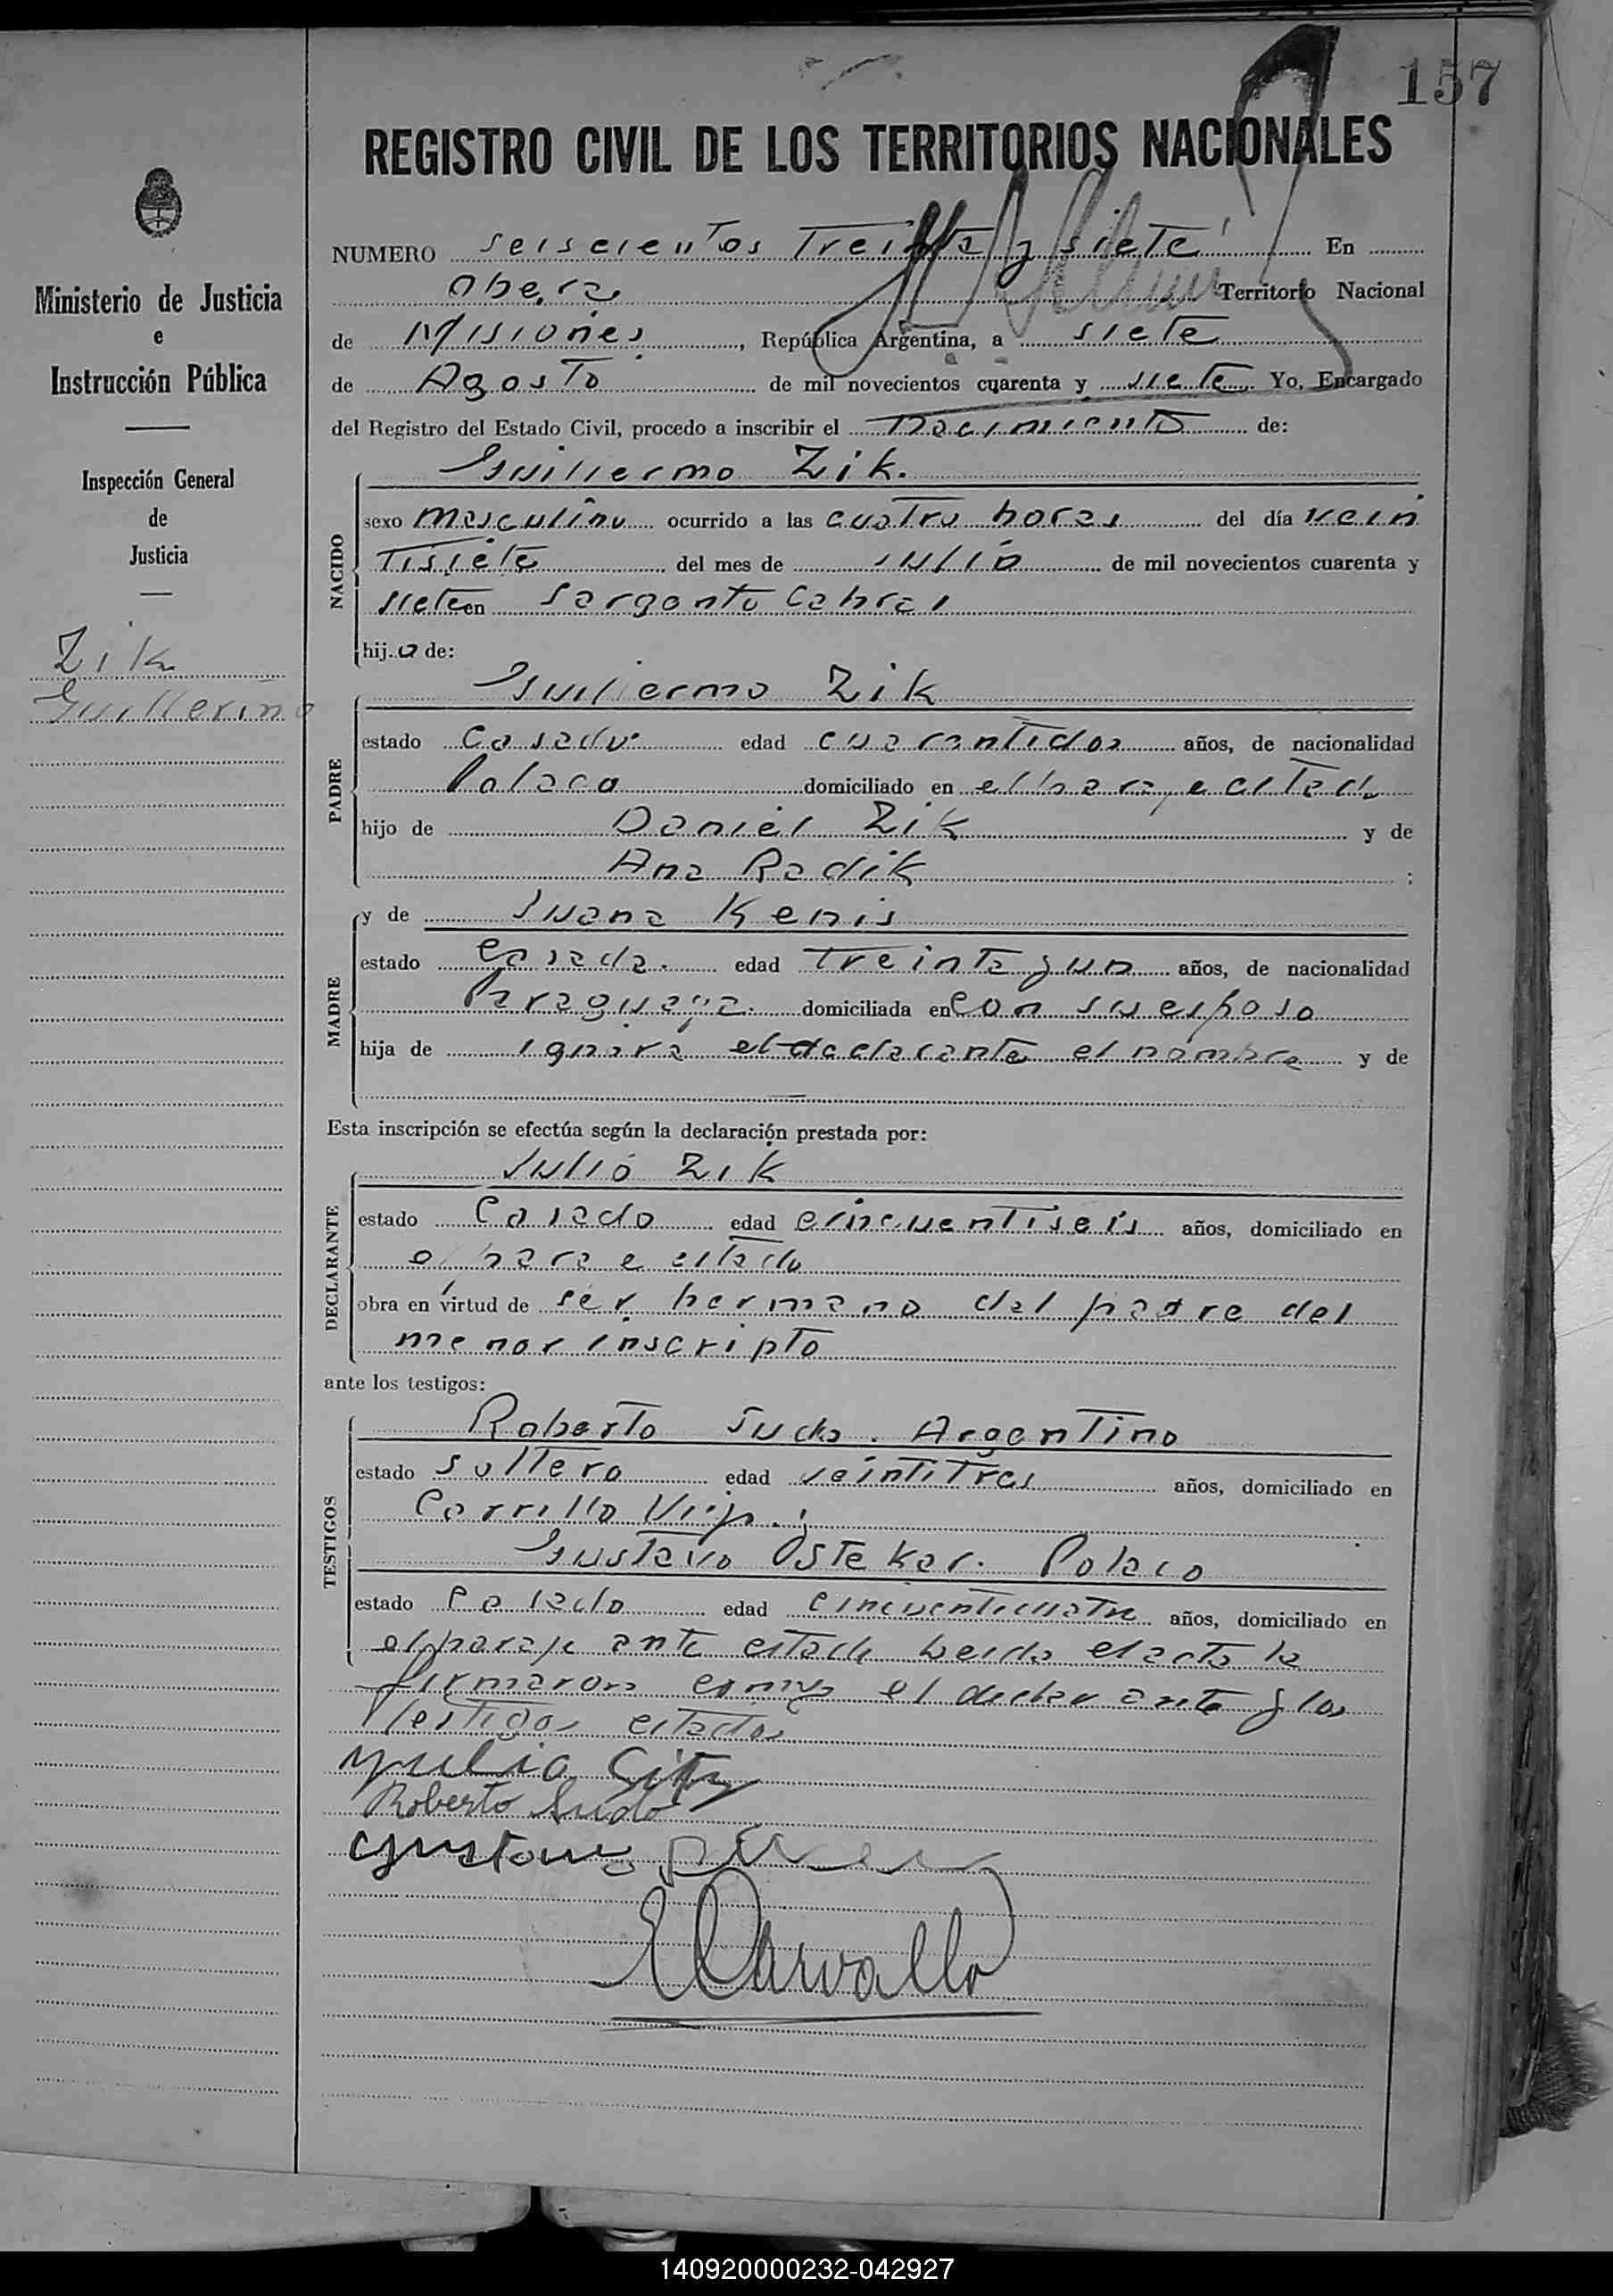 157
REGISTRO CIVIL DE LOS TERRITORIOS NACIONALES
Ministerio de Justicia
e
Instrucción Pública
Inspección General
de
Justicia
Zik
Guillermo
NUMERO seiscientos Treinta y siete En
Obera Territorio Nacional
de Misiones, República Argentina, a siete
de Agosto de mil novecientos cuarenta y siete Yo, Encargado
del Registro del Estado Civil, procedo a inscribir el nacimiento de:
NACIDO
Guillermo Zik.
sexo masculino ocurrido a las cuatro horas del día vein
Tisiete del mes de Julio de mil novecientos cuarenta y
siete en Sargento Cabral
hijo de:
PADRE
Guillermo Zik
estado Casado edad cuarentidos años, de nacionalidad
Polaca domiciliado en el paraje citado
hijo de Daniel Zik y de
Ana Radik ;
MADRE
y de Juana Kenis
estado Casada. edad Treinta y un años, de nacionalidad
Paraguaya. domiciliada en con su esposo
hija de ignora el declarante el nombre y de
Esta inscripción se efectúa según la declaración prestada por:
DECLARANTE
Julio Zik
estado Casado edad cincuentiseis años, domiciliado en
citado
obra en virtud de ser hermano del padre del
menor inscripto
ante los testigos:
TESTIGOS
Roberto Sudo. Argentino
estado soltero edad veintitres años, domiciliado en
Cerrillo Viejo.
Gustavo Osteker. Polaco
estado Casado edad cincuenticuatro años, domiciliado en
el paraje ante citado Leida el acta la
firmaron el declarante y los
Testigos citados
Roberto Sudo
Gustavo
E Carvallo
140920000232-042927